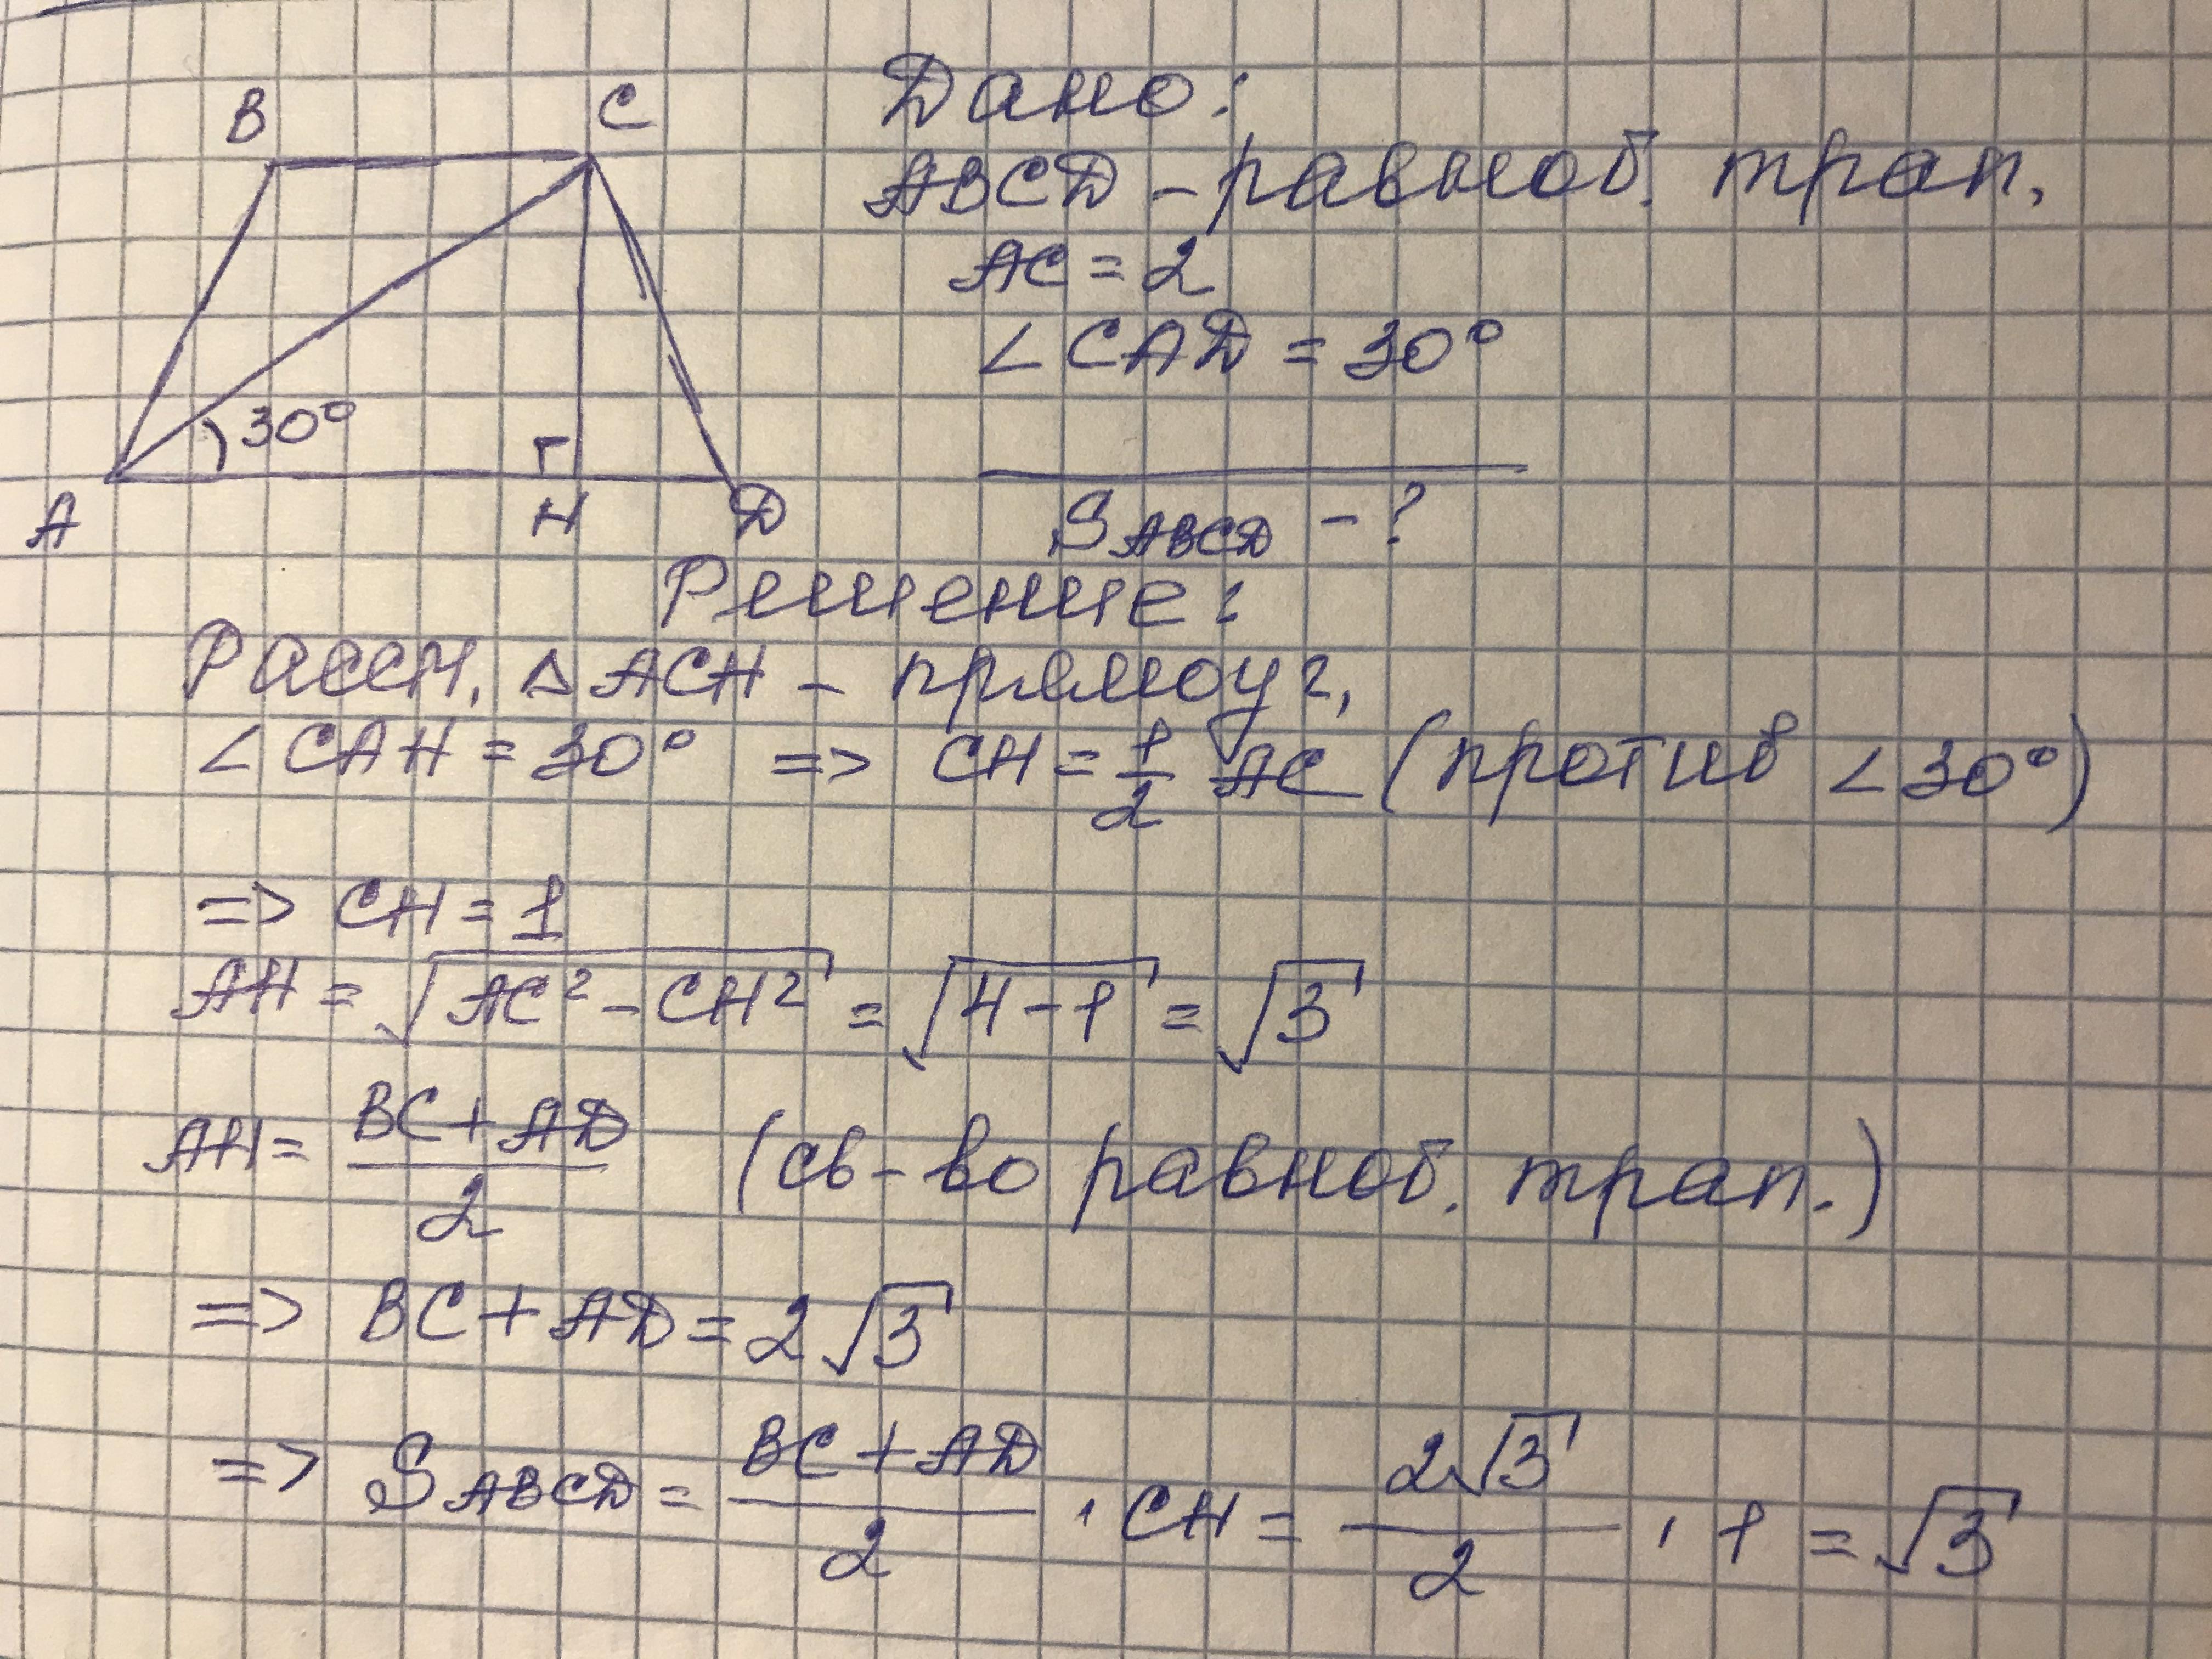 B C
30°
A H D
Дано:
ABCD – равноб. трап.
AC = 2
∠CAD = 30°
S ABCD – ?
Решение:
Рассм. △ACH – прямоуг,
∠CAH = 30° => CH = 1/2 AC (против ∠30°)
=> CH = 1
AH = √(AC² – CH²) = √(4–1) = √3
AH = (BC + AD)/2 (св-во равноб. трап.)
=> BC + AD = 2√3
=> S ABCD = (BC + AD)/2 · CH = 2√3/2 · 1 = √3